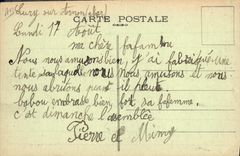 Lury sur Arnon (cher)
CARTE POSTALE
Lundi 17 Août
ma chère fafamton
Nous nous amusons bien, j'ai fabriqué une
tente sous laquelle nous nous amusons et nous
nous abritons quand il pleut
babou embrasse bien fort sa fafemme.
c'est dimanche l'assemblée
Pierre et Mimy